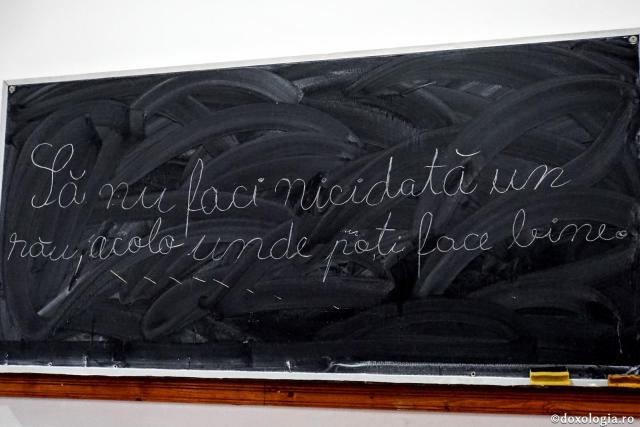 Să nu faci nicidată un
rău, acolo unde poți face bine.
©doxologia.ro